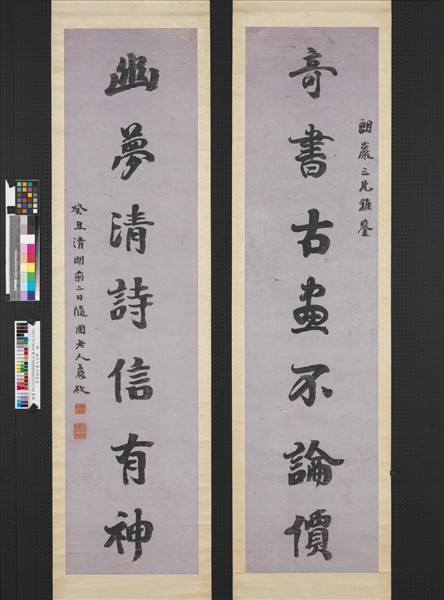 朗巖三兄雅鑒
奇書古畫不論價
幽夢清詩信有神
癸丑清明前二日隨園老人袁枚